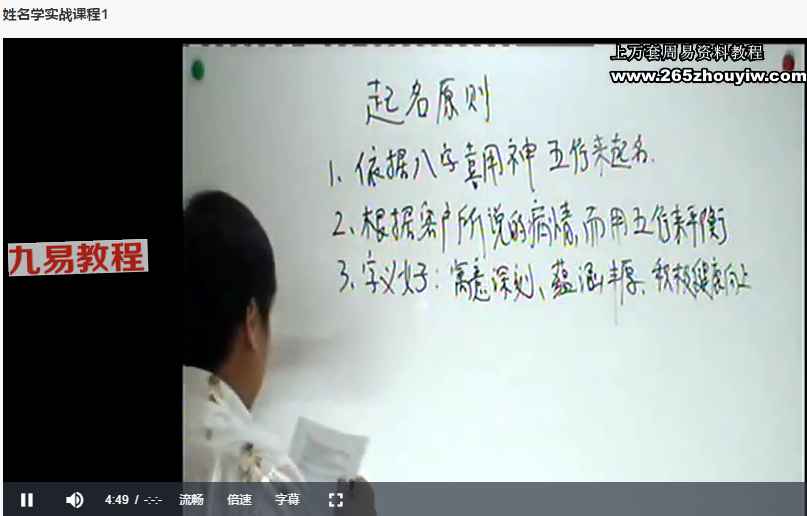 姓名学实战课程1
上万套周易资料教程
www.265zhouyiw.com
起名原则
1、依据八字真用神五行来起名.
2、根据客户所说的病情,而用五行来平衡
九易教程
3、字义好：寓意深刻、蕴涵丰厚、积极健康向上
4:49 / -:-:- 流畅 倍速 字幕